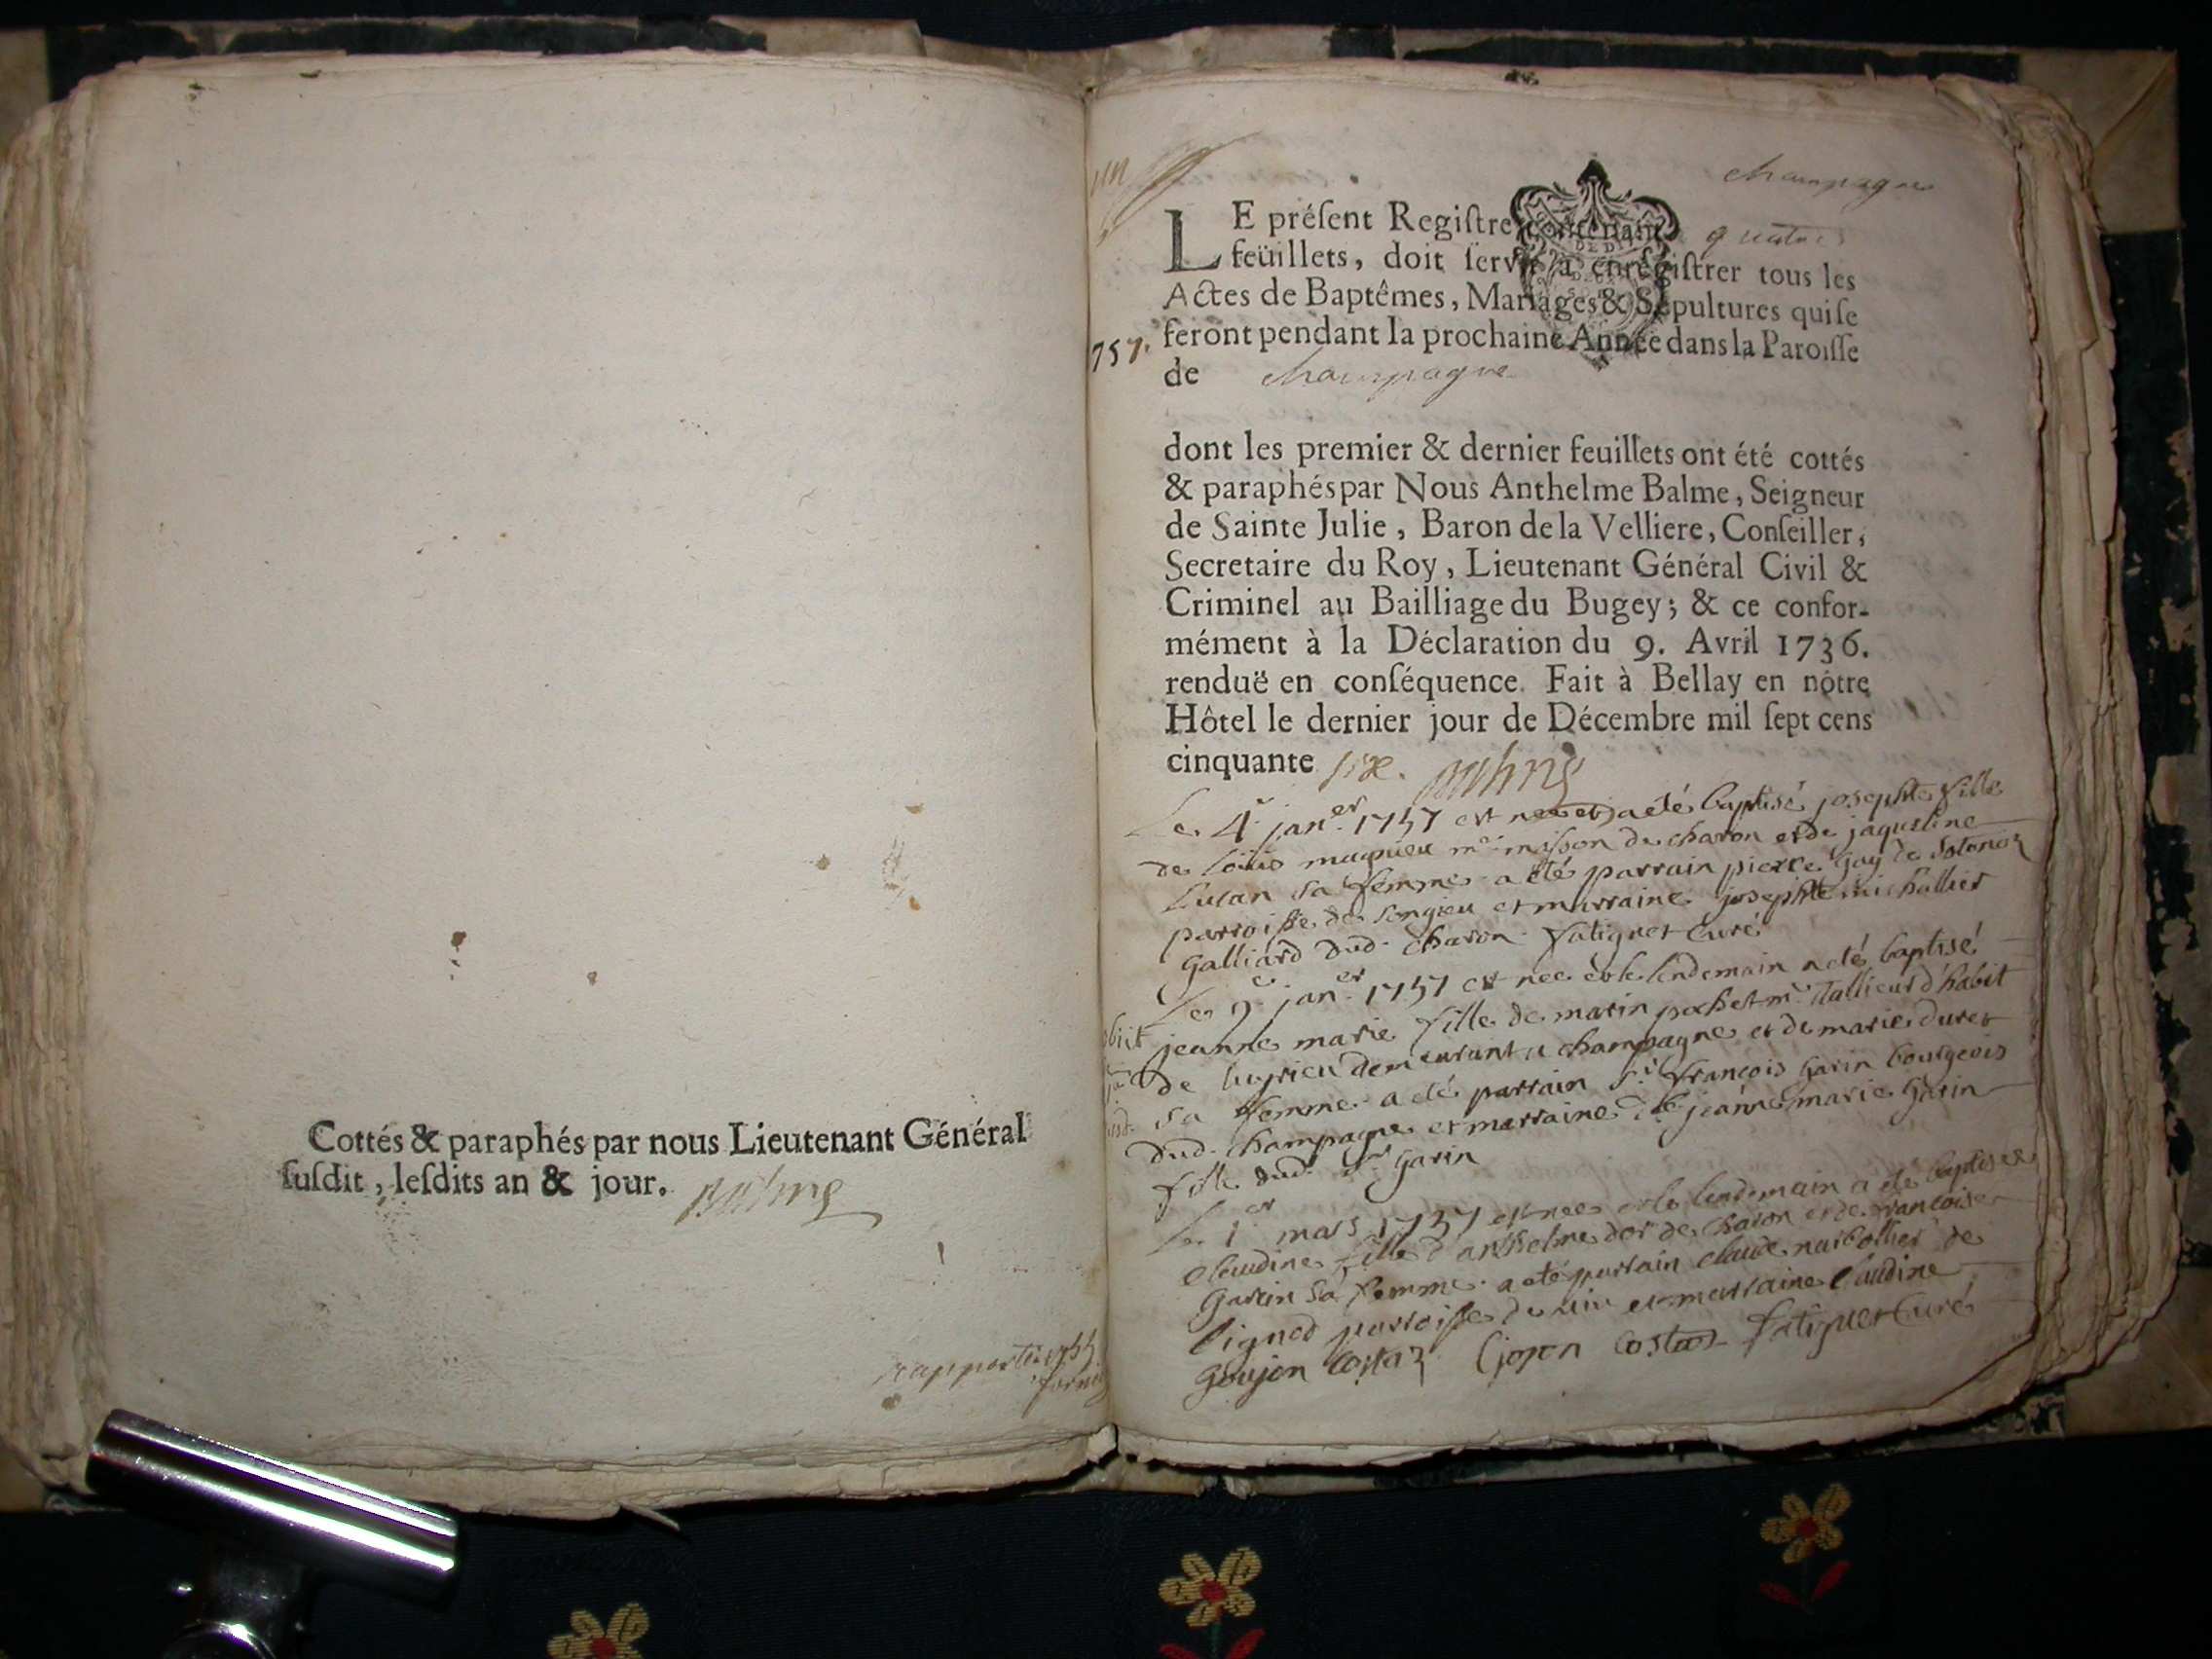 Cottés & paraphés par nous Lieutenant Général
ſuſdit, leſdits an & jour.
Balme
rapporté
champagne
LE préſent Regiſtre contenant quatre
feüillets, doit ſervir à enregiſtrer tous les
Actes de Baptêmes, Mariages & Sépultures qui ſe
feront pendant la prochaine Année dans la Paroiſſe
1757.
de champagne
dont les premier & dernier feuillets ont été cottés
& paraphés par Nous Anthelme Balme, Seigneur
de Sainte Julie, Baron de la Velliere, Conſeiller,
Secretaire du Roy, Lieutenant Général Civil &
Criminel au Bailliage du Bugey; & ce confor-
mément à la Déclaration du 9. Avril 1736.
renduë en conſéquence. Fait à Bellay en nôtre
Hôtel le dernier jour de Décembre mil ſept cens
cinquante six. Balme
Le 4e janer 1757 est née et a eté baptisé josephte fille
de loüis mugnieu me masson de charon et de jaqueline
lucan sa femme a eté parrain pierre guy de
parroisse de songieu et marraine josephte michallier
galliard dud. charon fatiguet curé
Le 9e janer 1757 est née et le lendemain a eté baptisé
jeanne marie fille de marin pochet me tallieur d'habit
de luyrieu demeurant a champagne et de marie duret
sa femme a eté parrain sr françois garin bourgeois
dud. champagne et marraine dlle jeanne marie garin
fille dud. sr garin
Le 1er mars 1757 est née et le lendemain a eté baptisee
claudine fille d'anthelme dor de charon et de françoise
garin sa femme a eté parrain claude narbollier de
lignod parroisse de et marraine claudine
goujon costaz Gojon Costaz fatiguet curé